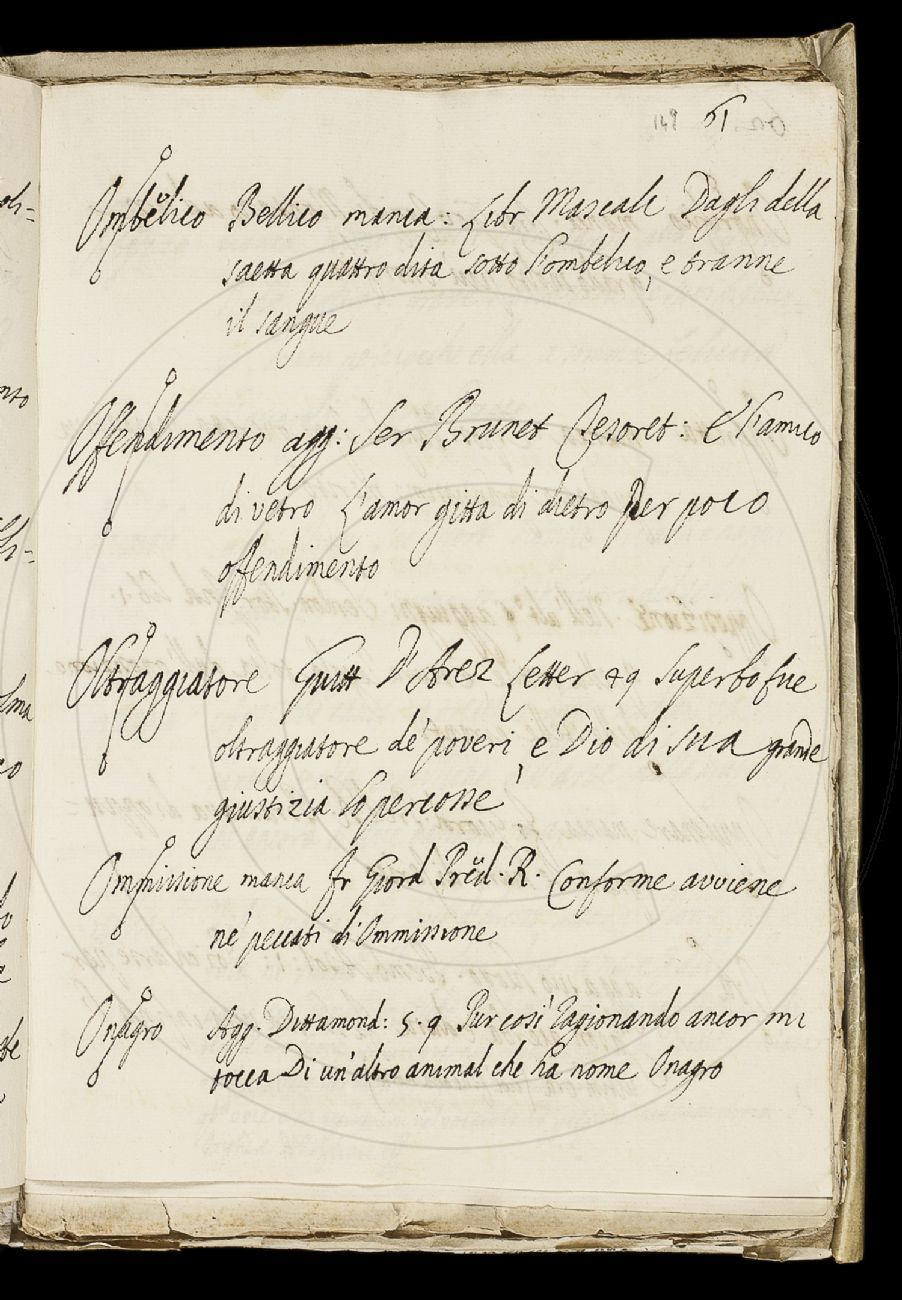 148 61
Ombelico Bellico manca: Libr Mascalc Dagli della
saetta quattro dita sotto l'ombelico, e tranne
il sangue
Offendimento agg: Ser Brunet Tesoret: E l'amico
di vetro L'amor gitta di dietro Per poco
offendimento
Oltraggiatore Guitt D'Arez Letter 29 Superbo fue
oltraggiatore de' poveri, e Dio di sua grande
giustizia lo percosse
Ommissione manca Fr Giord Pred. R. Conforme avviene
ne' peccati di Ommissione
Onagro Agg. Dittamond: 5. 9 Pur così ragionando ancor mi
tocca Di un'altro animal che ha nome Onagro